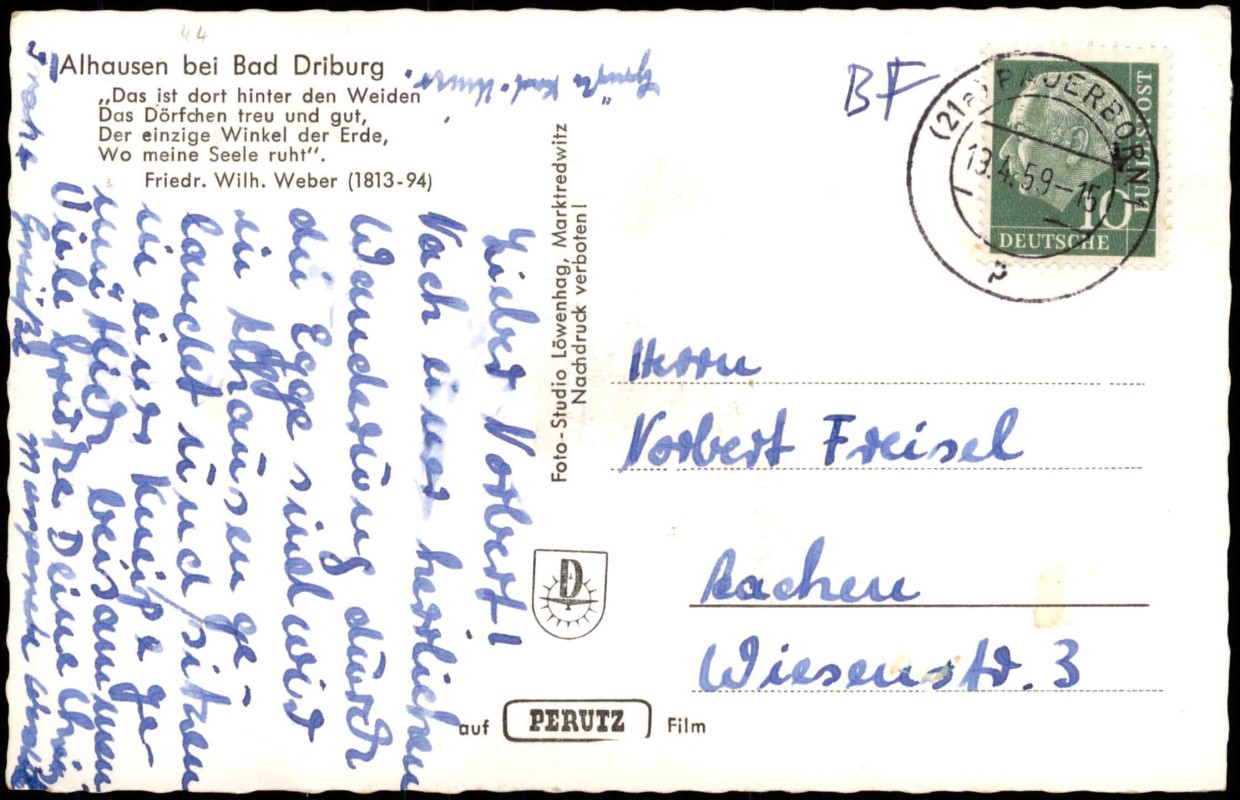 44
Alhausen bei Bad Driburg
„Das ist dort hinter den Weiden
Das Dörfchen treu und gut,
Der einzige Winkel der Erde,
Wo meine Seele ruht“.
Friedr. Wilh. Weber (1813-94)
Lieber Norbert!
Nach einer herrlichen
Wanderung durch
die Egge sind wir
in Alhausen ge-
landet und sitzen
in einer Kneipe ge-
mütlich beisammen
Viele Grüße Deine
Grüße
Foto-Studio Löwenhag, Marktredwitz
Nachdruck verboten!
D
auf PERUTZ Film
BF
(21a) PADERBORN 1
19.4.59-15
DEUTSCHE
BUNDESPOST
10
Herrn
Norbert Freisel
Aachen
Wiesenstr. 3